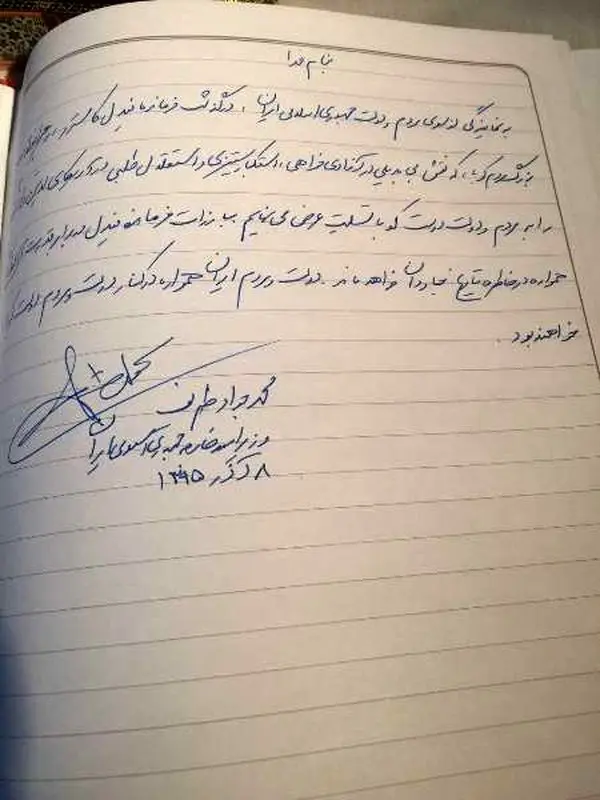 بنام خدا
به نمایندگی از سوی مردم و دولت جمهوری اسلامی ایران، درگذشت فرمانده فیدل کاسترو، رهبر
بزرگ مردم کوبا، که نقش بی بدیلی در آزادی خواهی، استکبارستیزی و استقلال طلبی در آمریکای لاتین
را به مردم و دولت دوست کوبا تسلیت عرض می نمایم. مبارزات فرمانده فیدل در برابر
همواره در خاطره جاودان خواهد ماند. دولت و مردم ایران همواره در کنار دولت و مردم
خواهند بود.
محمد جواد ظریف
وزیر امور خارجه جمهوری اسلامی ایران
۸ آذر ۱۳۹۵